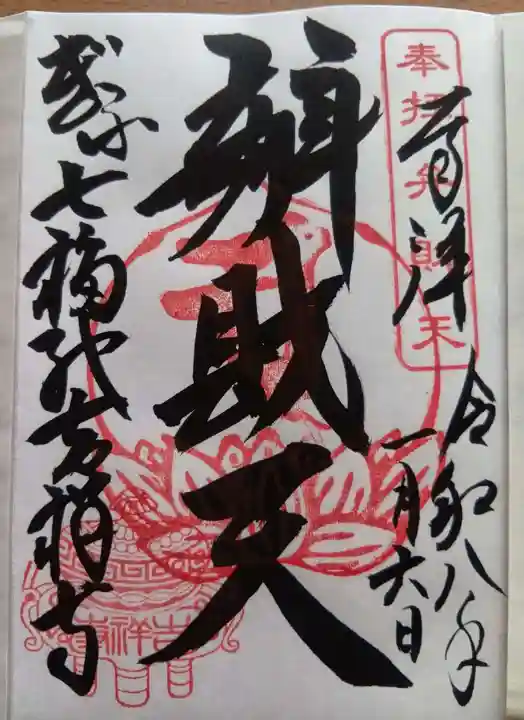 奉拝弁財天
奉拝
令和八年
一月六日
辨財天
七福神吉祥寺
吉祥寺